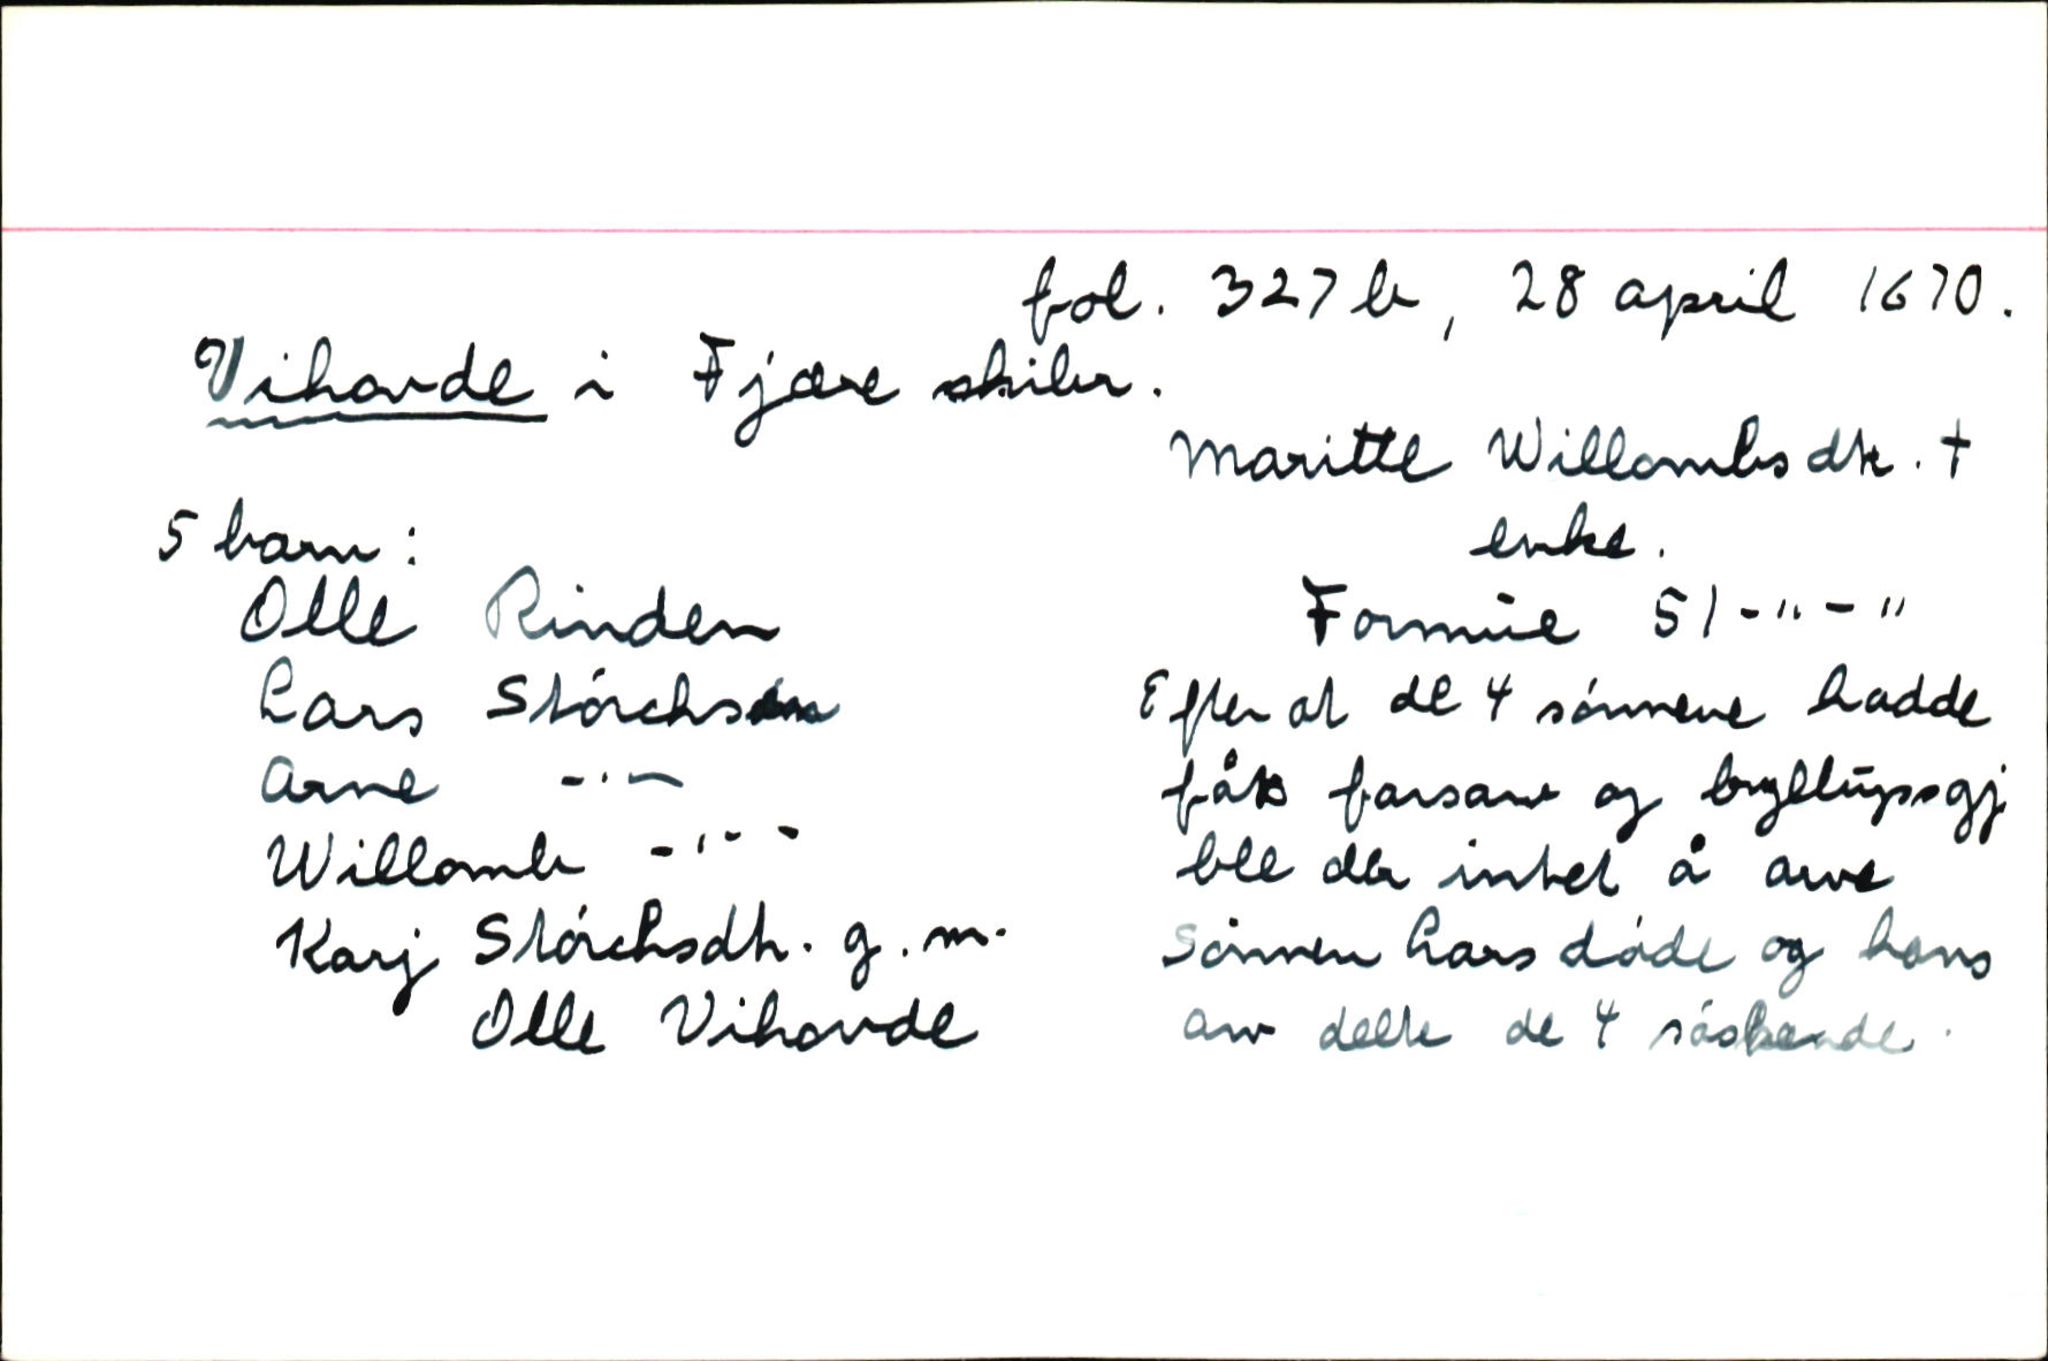 fol. 327 b, 28 april 1670.
Vihovde i Fjære skibr.
Maritte Willombsdtr. †
enke.
5 barn:
Olle Rinden
Lars Störchsön
Arne -"-
Willomb -"-
Karj Störchsdtr. g.m.
Olle Vihovde
Formue 51-"-"
Efter at de 4 sönnene hadde
fått farsarv og bryllupsgj
ble der intet å arve
Sönnen Lars döde og hans
arv delte de 4 söskende.